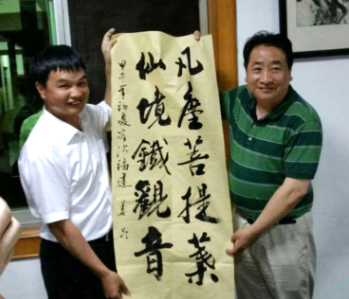 凡塵菩提葉
仙境鐵觀音
甲午年初夏